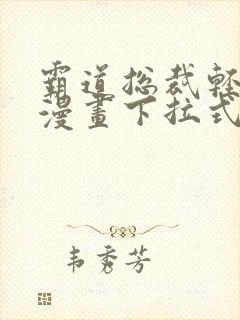 霸道总裁轻
漫画下拉式
韦秀芳